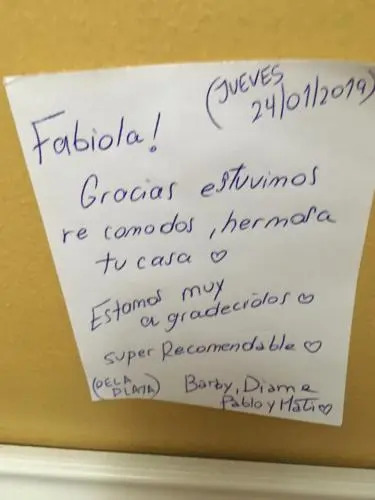 (JUEVES
24/01/2019)
Fabiola!
Gracias estuvimos
re comodos, hermosa
tu casa ♡
Estamos muy
agradecidos ♡
super Recomendable ♡
(DE LA
PLATA)
Barby, Diame
Pablo y Mati ♡